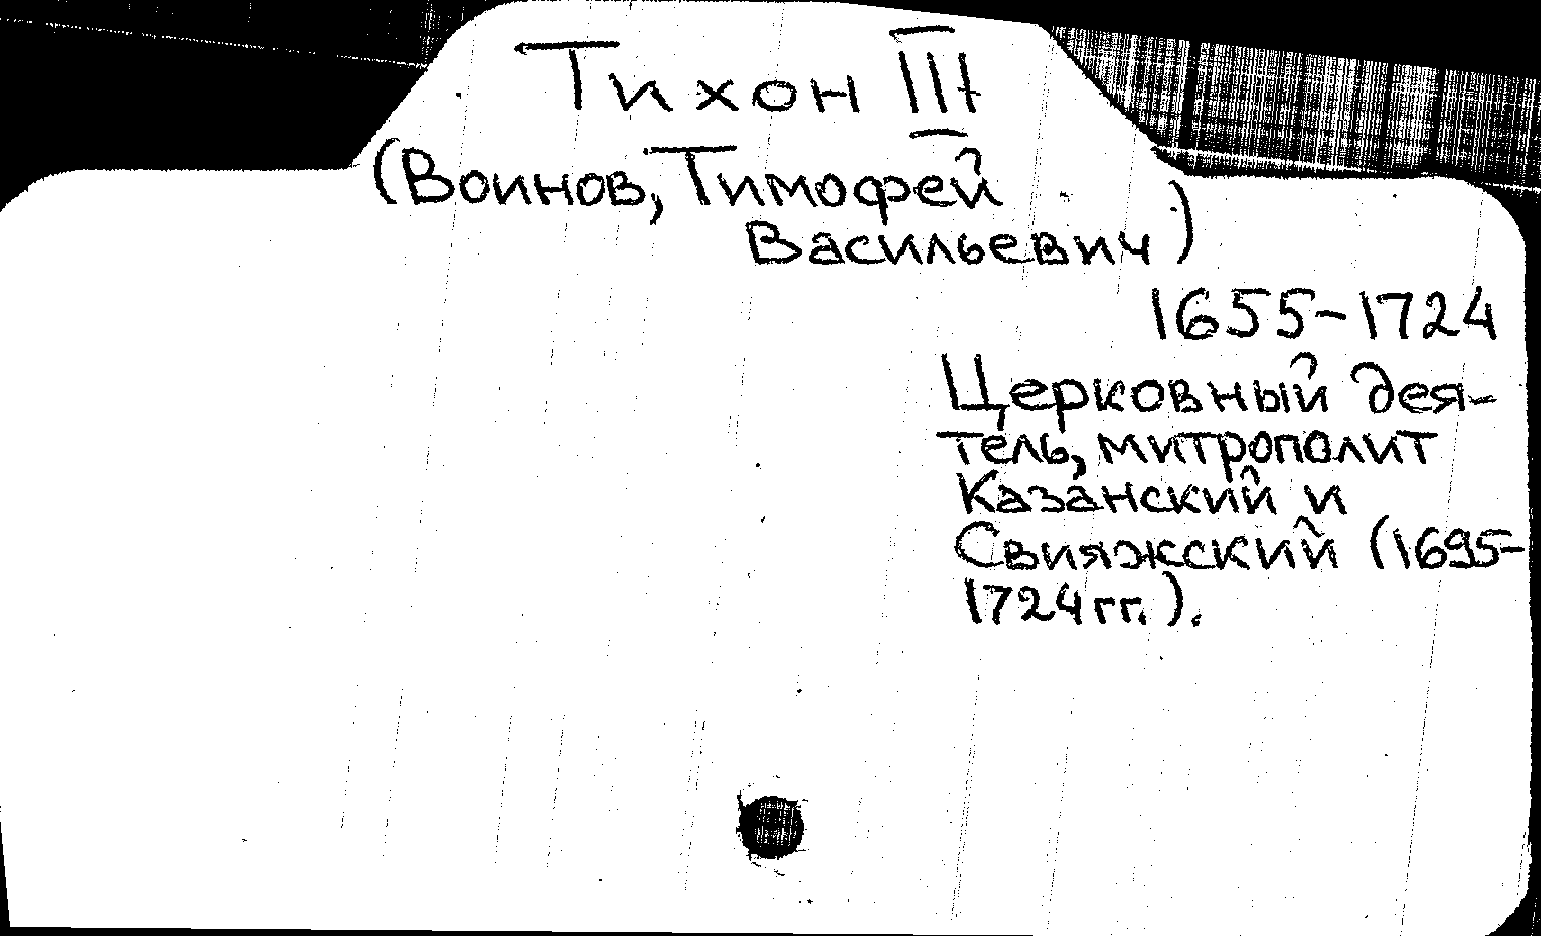 Тихон III
(Воинов, Тимофей
Васильевич)
1655-1724
Церковный дея-
тель, митрополит
Казанский и
Свияжский (1695-
1724 гг.).